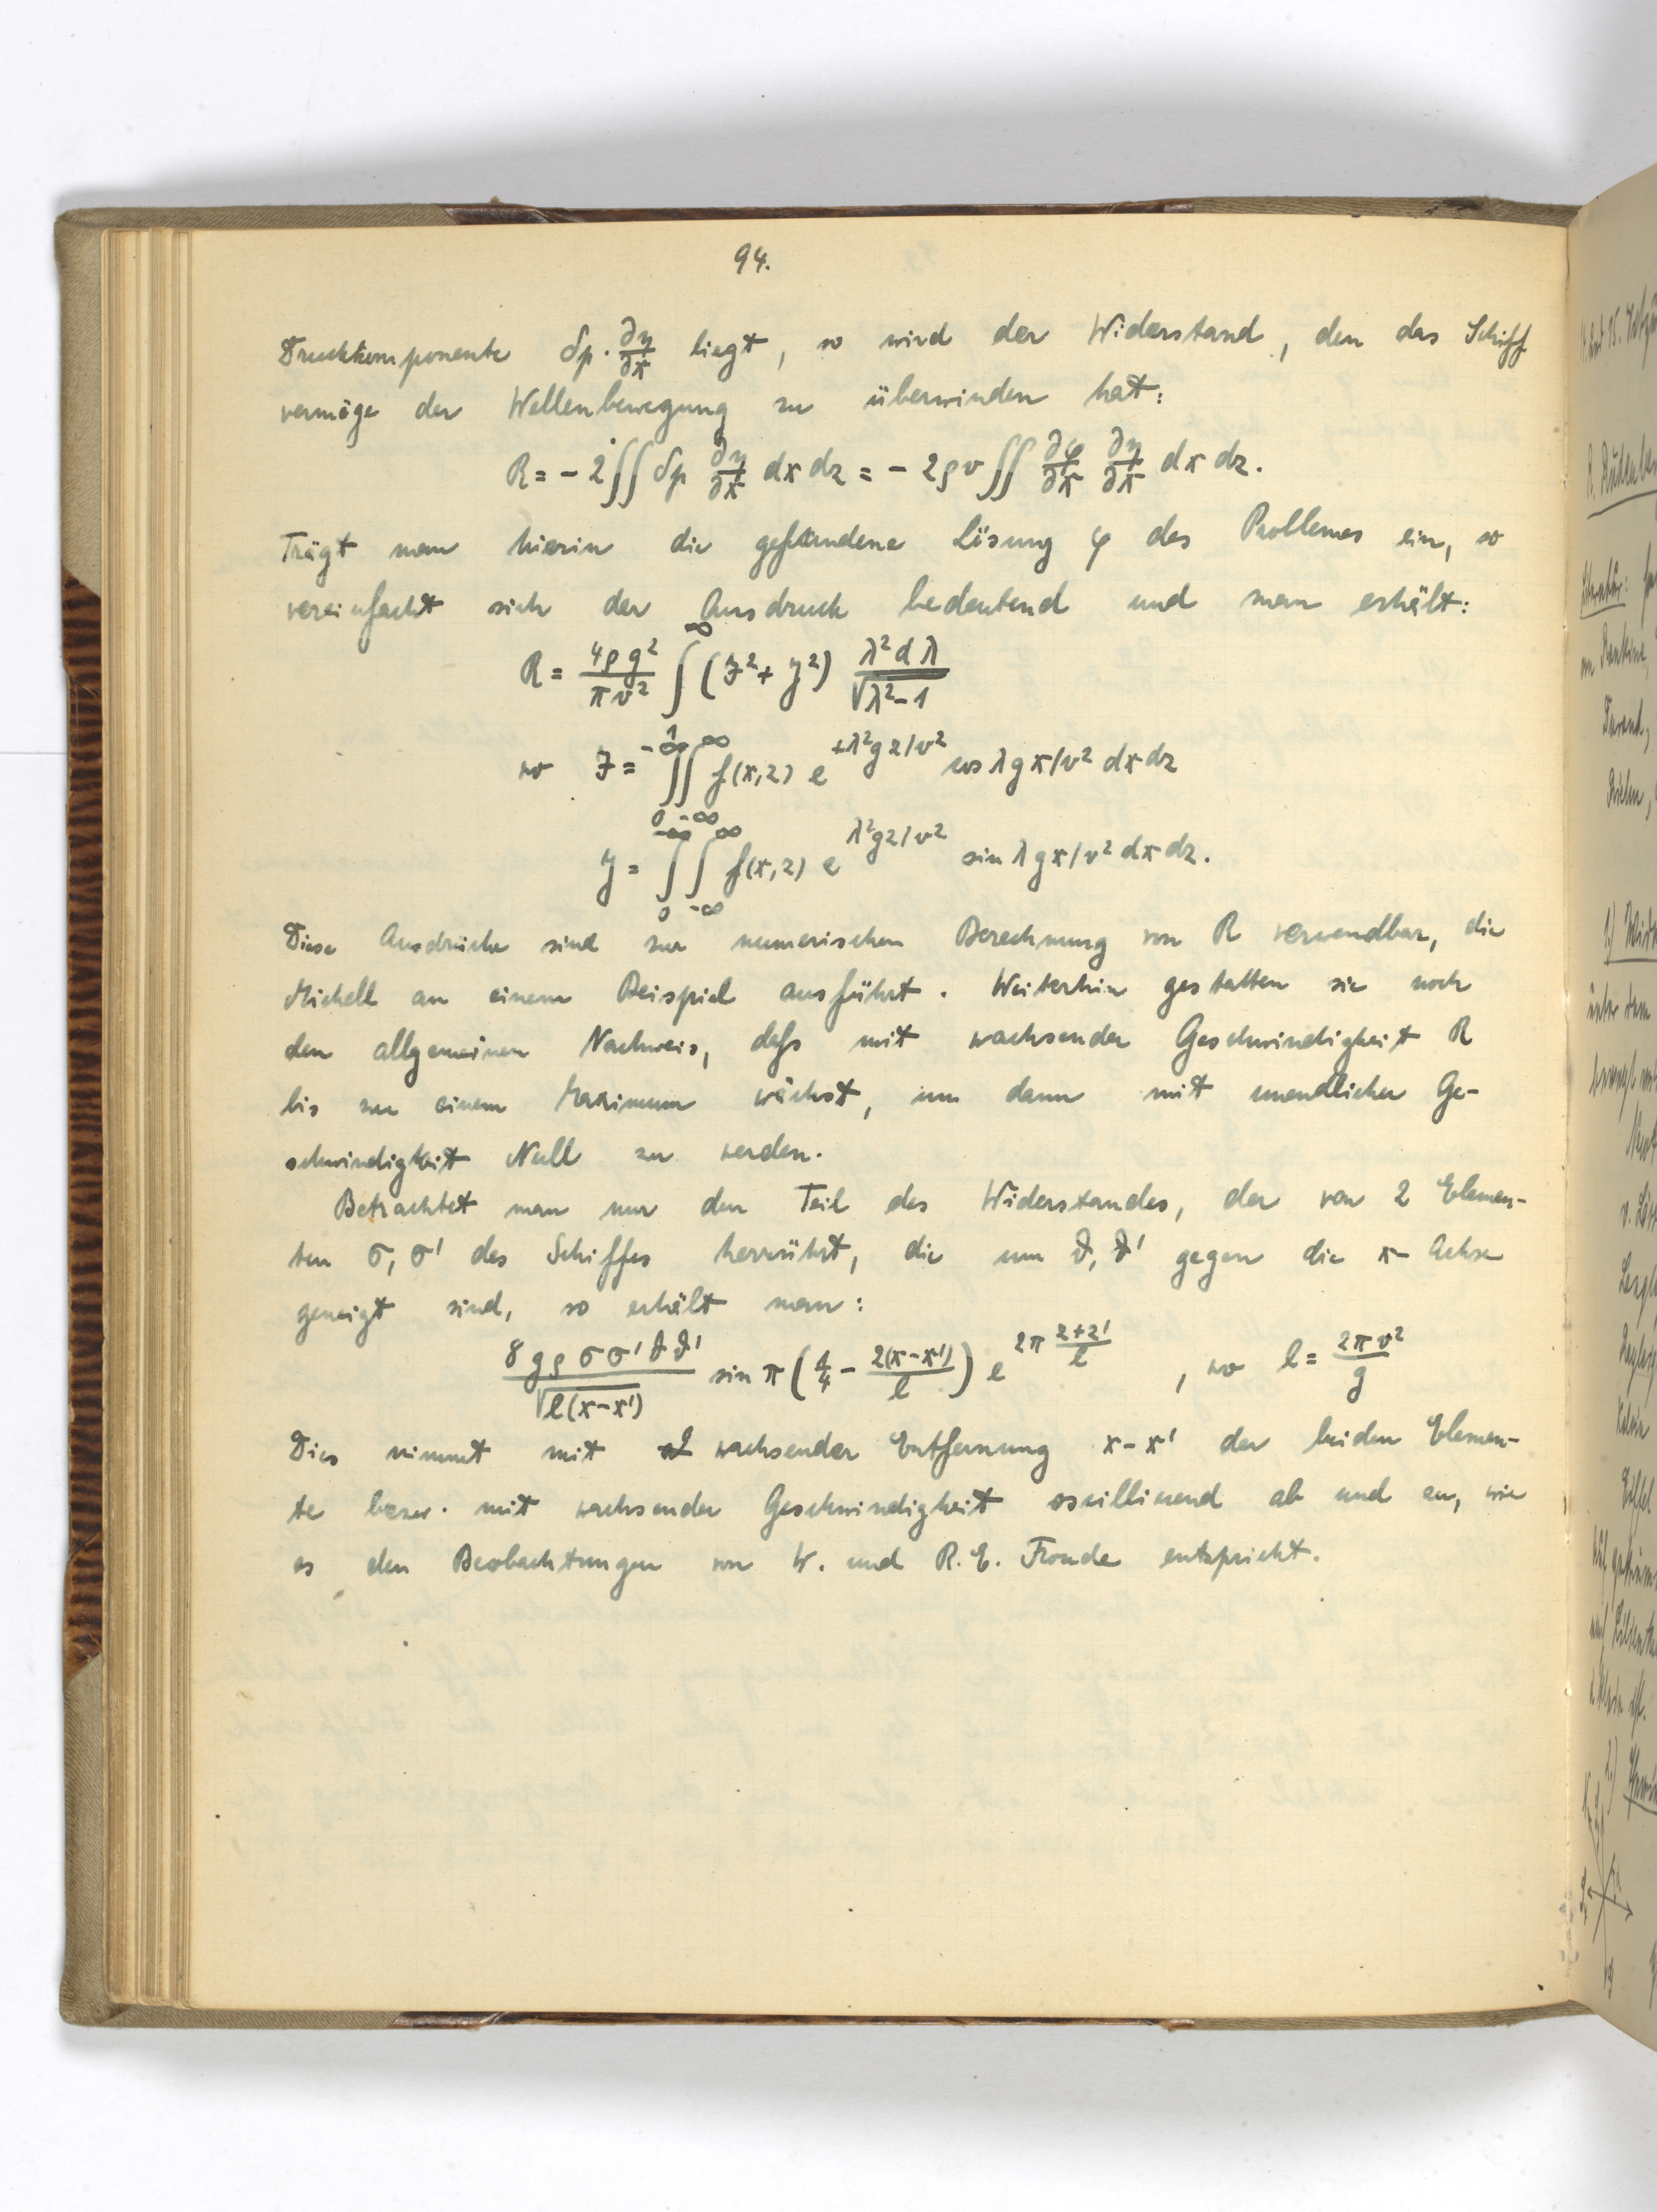 94.
Druckkomponente δp · ∂y/∂x liegt, so wird der Widerstand, den das Schiff
vermöge der Wellenbewegung zu überwinden hat:
R = - 2 ∫∫ δp ∂y/∂x dx dz = - 2ρv ∫∫ ∂φ/∂x ∂y/∂x dx dz.
Trägt man hierin die gefundene Lösung φ des Problemes ein, so
vereinfacht sich der Ausdruck bedeutend und man erhält:
R = 4ρg²/πv² ∫₁^∞ (J² + y²) λ² dλ/√(λ²-1)
wo J = ∫₀^-∞ ∫_-∞^∞ f(x,z) e^(+λ²gz/v²) cos λgx/v² dx dz
y = ∫₀^-∞ ∫_-∞^∞ f(x,z) e^(λ²gz/v²) sin λgx/v² dx dz.
Diese Ausdrücke sind zur numerischen Berechnung von R verwendbar, die
Michell an einem Beispiel ausführt. Weiterhin gestatten sie noch
den allgemeinen Nachweis, dass mit wachsender Geschwindigkeit R
bis zu einem Maximum wächst, um dann mit unendlicher Ge-
schwindigkeit Null zu werden.
Betrachtet man nur den Teil des Widerstandes, der von 2 Elemen-
ten σ, σ' des Schiffes herrührt, die um ϑ, ϑ' gegen die x- Achse
geneigt sind, so erhält man:
8gρσσ'ϑϑ'/√(l(x-x')) sin π (1/4 - 2(x-x')/l) e^(2π (z+z')/l) , wo l = 2πv²/g
Dies nimmt mit wachsender Entfernung x-x' der beiden Elemen-
te bezw. mit wachsender Geschwindigkeit oscillierend ab und zu, wie
es den Beobachtungen von W. und R.E. Froude entspricht.